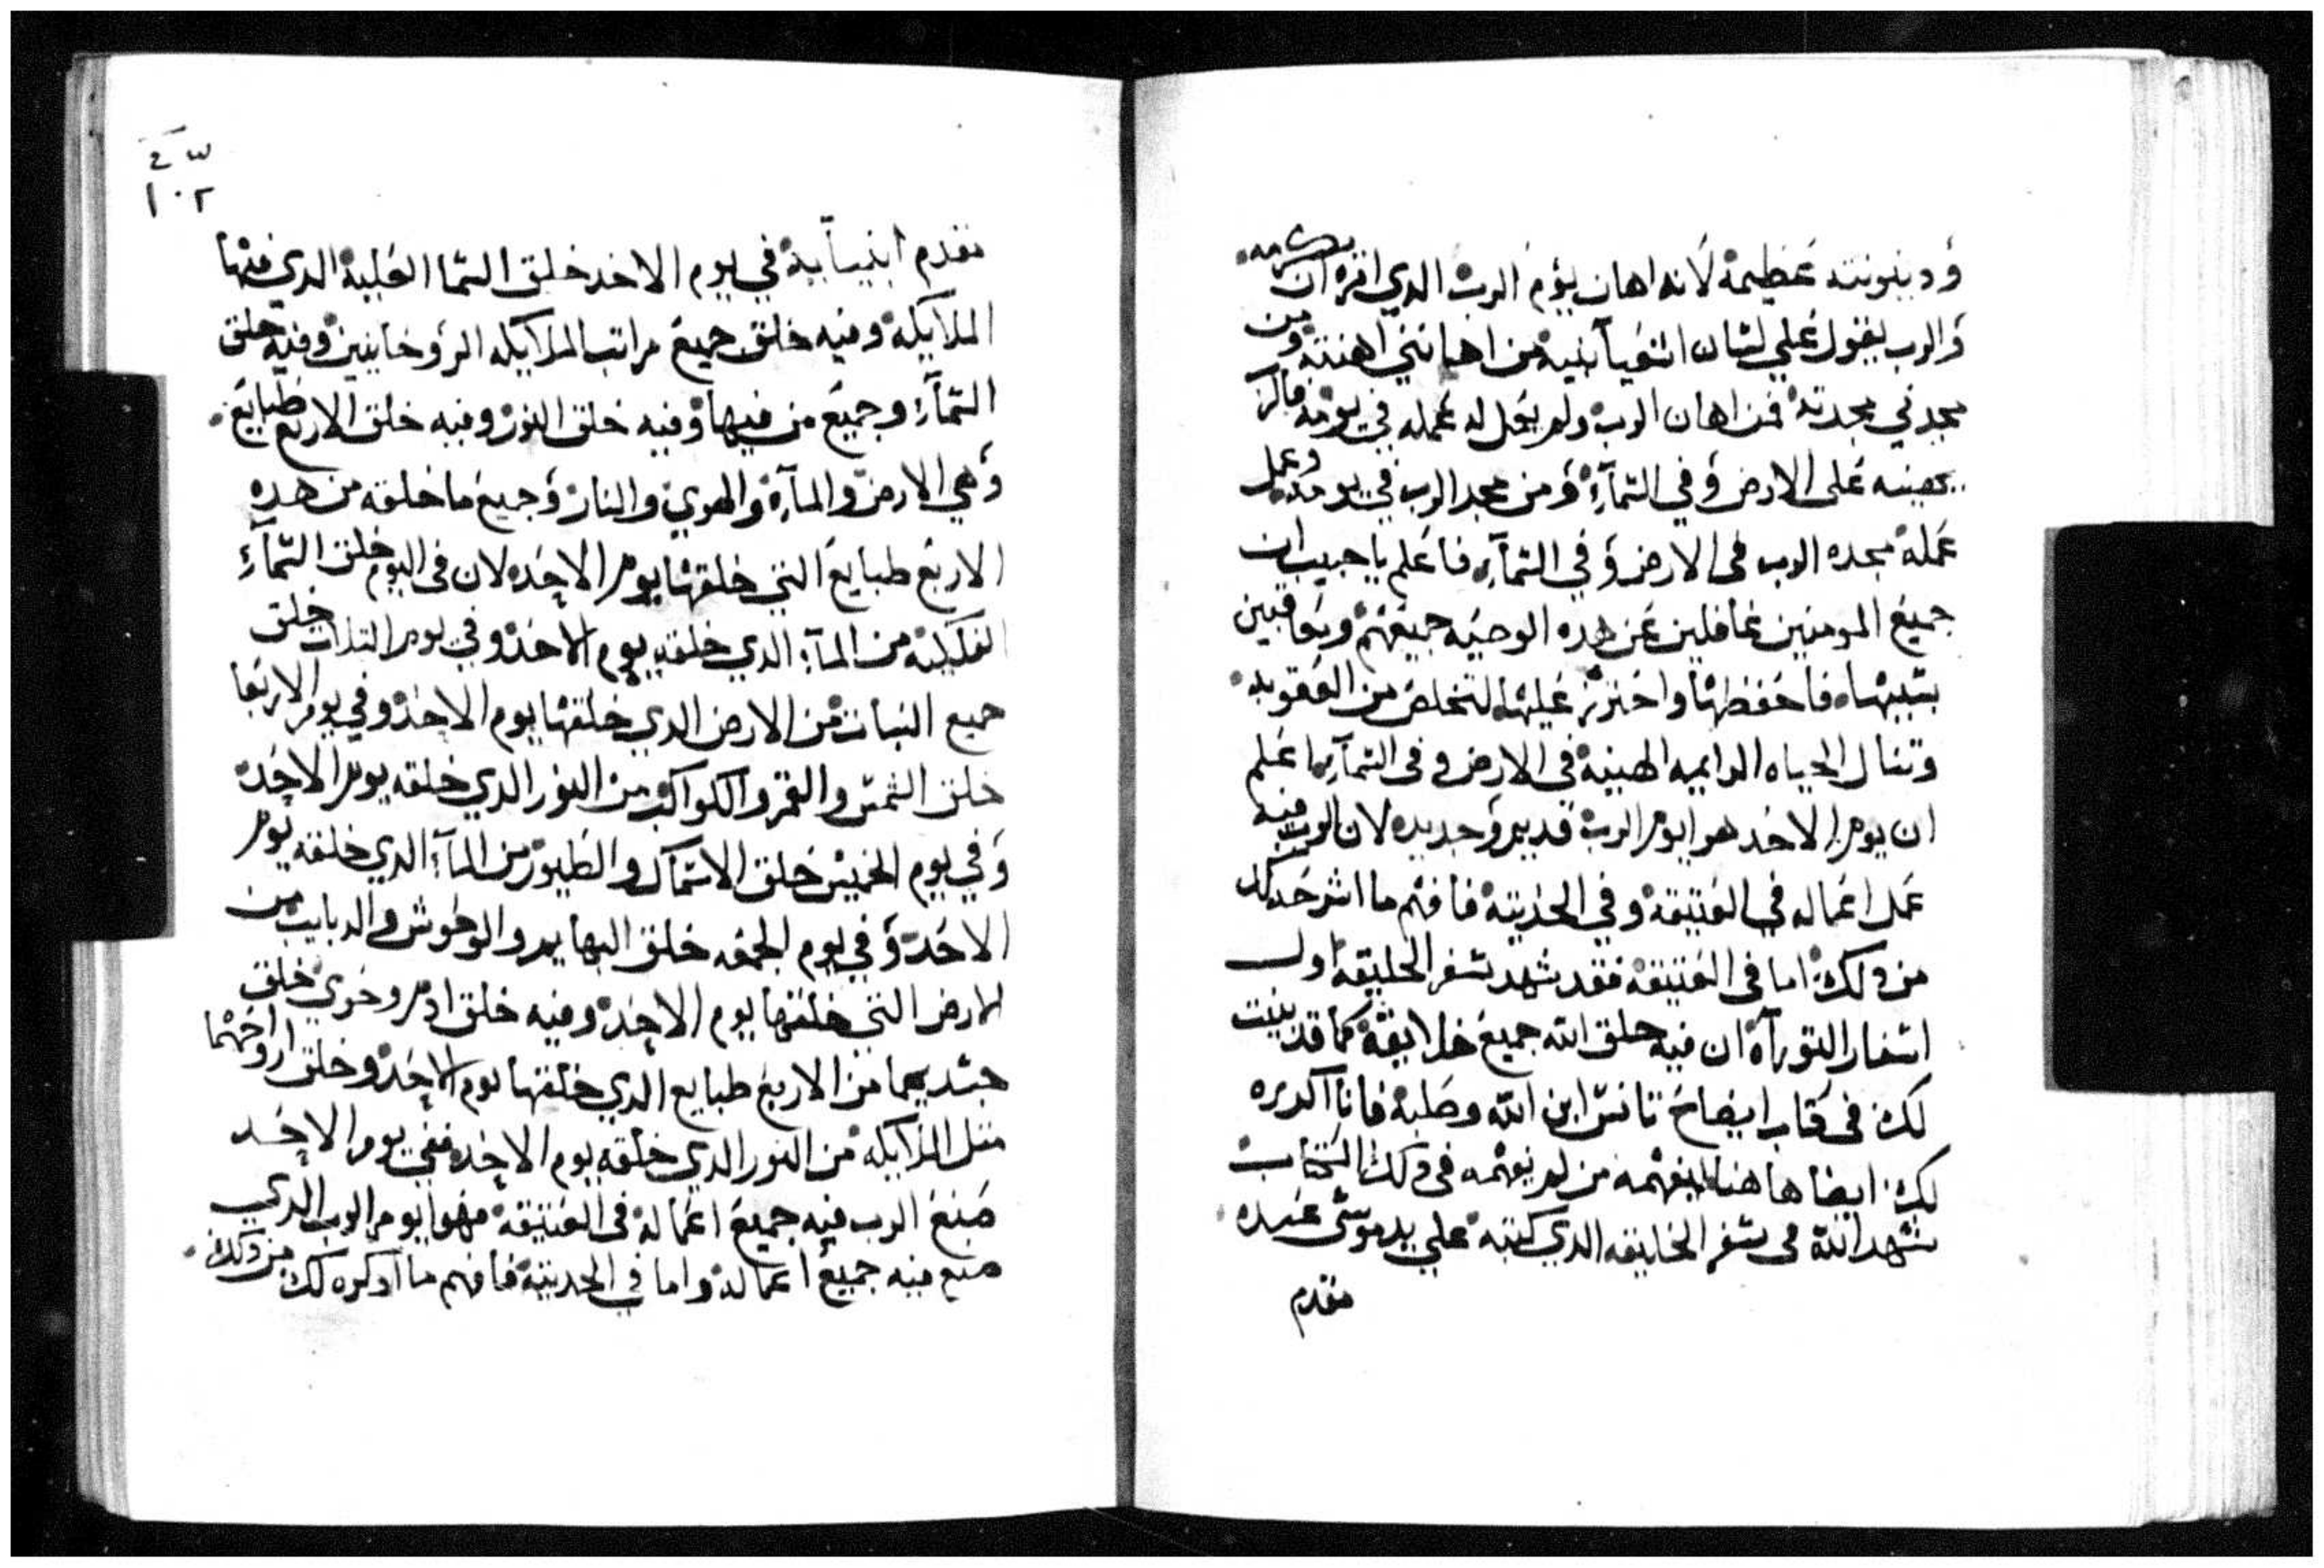 ودينونته عظيمة لانه اهان يوم الرب الدي امره ان يكرمه
والرب يقول علي لسان اشعيا نبيه من اهانني اهنته ومن
مجدني مجدته فمن اهان الرب ولم يعمل له عمله في يومه فالرب
يهينه على الارض وفي السمآء ومن مجد الرب في يومه وعمل
عمله مجده الرب في الارض وفي السمآء فاعلم يا حبيب ان
جميع المومنين غافلين عن هده الوصيه جميعهم ويعاقبين
بسببها فاحفظها واحترز عليها لتخلص من العقوبه
وتنال الحياه الدايمه الهنية في الارض وفي السمآء اعلم
ان يوم الاحد هو يوم الرب قديم وجديد لان الرب فيه
عمل اعماله في العتيقة وفي الحديته فافهم ما اشرحه لك
من دلك اما في العتيقة فقد شهد سفر الخليقة اول
اسفار التوراة ان فيه خلق الله جميع خلايقه كما قد بينت
لك في كتاب ايضاح تانس ابن الله وصلبه فانا اكرره
لك ايضا هاهنا ليفهمه من لم يفهمه في دلك الكتاب
شهد الله في سفر الخليقه الدي كتبه علي يد موسى عبده
مقدم
٤٣
١٠٢
مقدم انبيآيه في يوم الاحد خلق السما العلية الدي فيها
الملايكة وفيه خلق جميع مراتب الملايكه الروحانيين وفيه خلق
السمآء وجميع من فيها وفيه خلق النور وفيه خلق الاربع طبايع
وهي الارض والمآء والهوي والنار وجميع ما خلقه من هده
الاربع طبايع التي خلقها يوم الاحد لان في اليوم خلق السمآء
الفلكية من المآء الدي خلقه يوم الاحد وفي يوم التلات خلق
جميع النبات من الارض الدي خلقها يوم الاحد وفي يوم الاربعا
خلق الشمس والقمر والكواكب من النور الدي خلقه يوم الاحد
وفي يوم الخميس خلق الاسماك والطيور من المآء الدي خلقه يوم
الاحد وفي يوم الجمعه خلق البهايم والوحوش والدبايب من
الارض التي خلقها يوم الاحد وفيه خلق ادم وحوي خلق
جسديهما من الاربع طبايع الدي خلقها يوم الاحد وخلق ارواحهما
متل الملايكه من النور الدي خلقه يوم الاحد ففي يوم الاحد
صنع الرب فيه جميع اعماله في العتيقة فهو يوم الرب الدي
صنع فيه جميع اعماله واما في الحديته فافهم ما ادكره لك من دلك